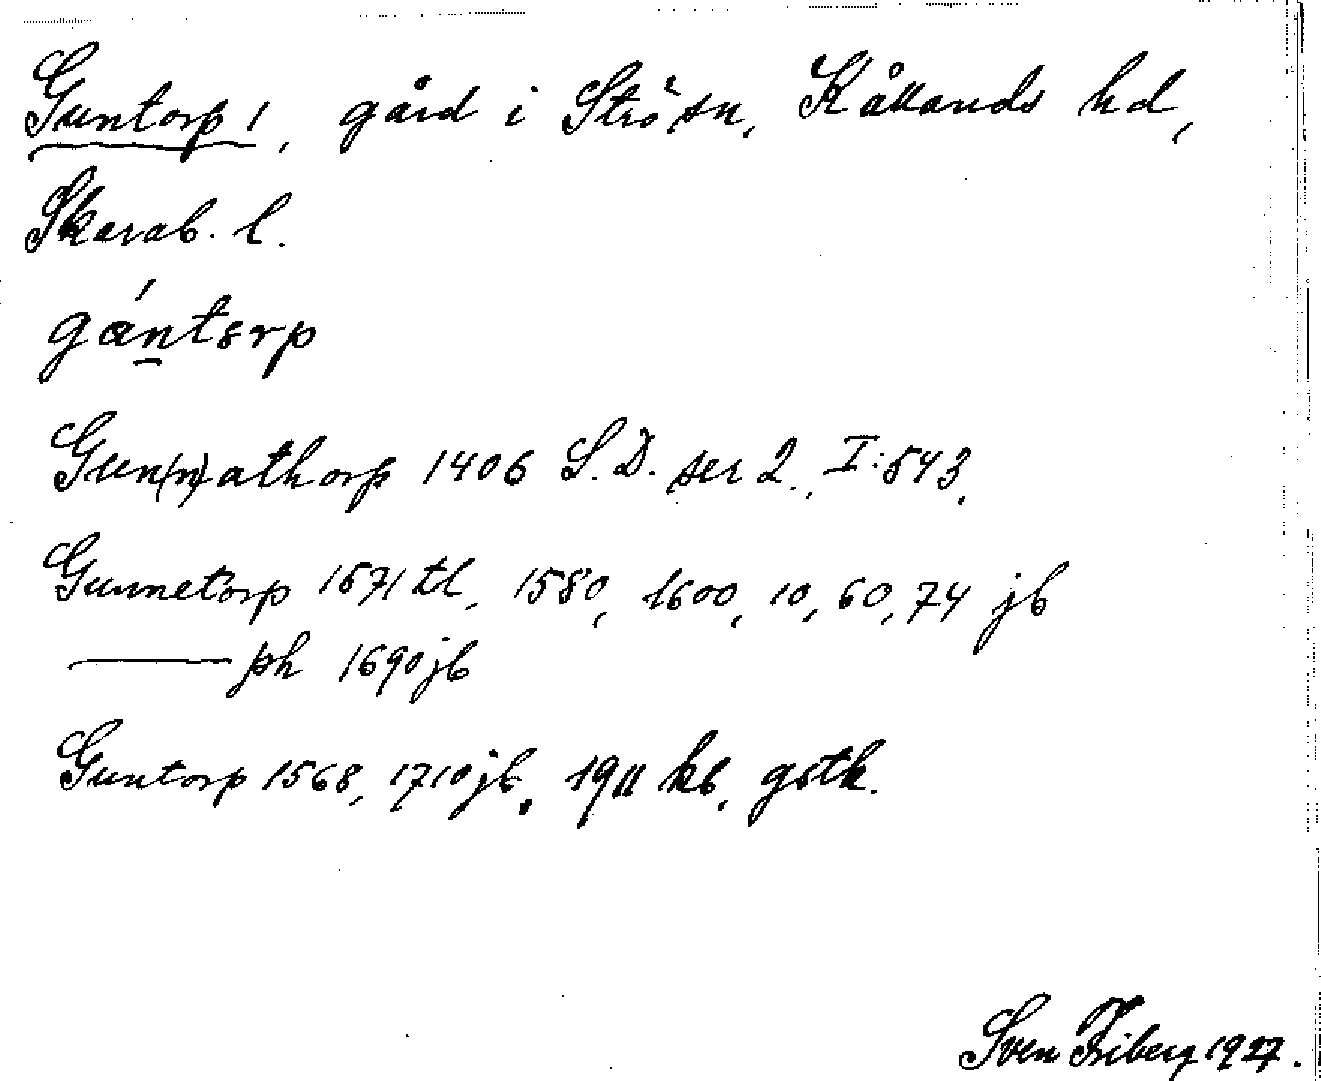 Guntorp 1, gård i Strö sn, Kållands hd,
Skarab. l.
gάn̲tɛrp
Gun(n)athorp 1406 S.D. ser 2., I:543,
Gunnetorp 1571 tl, 1580, 1600, 10, 60, 74 jb
——— ph 1690 jb
Guntorp 1568, 1710 jb, 1911 kb, gstk.
Sven Friberg 1927.